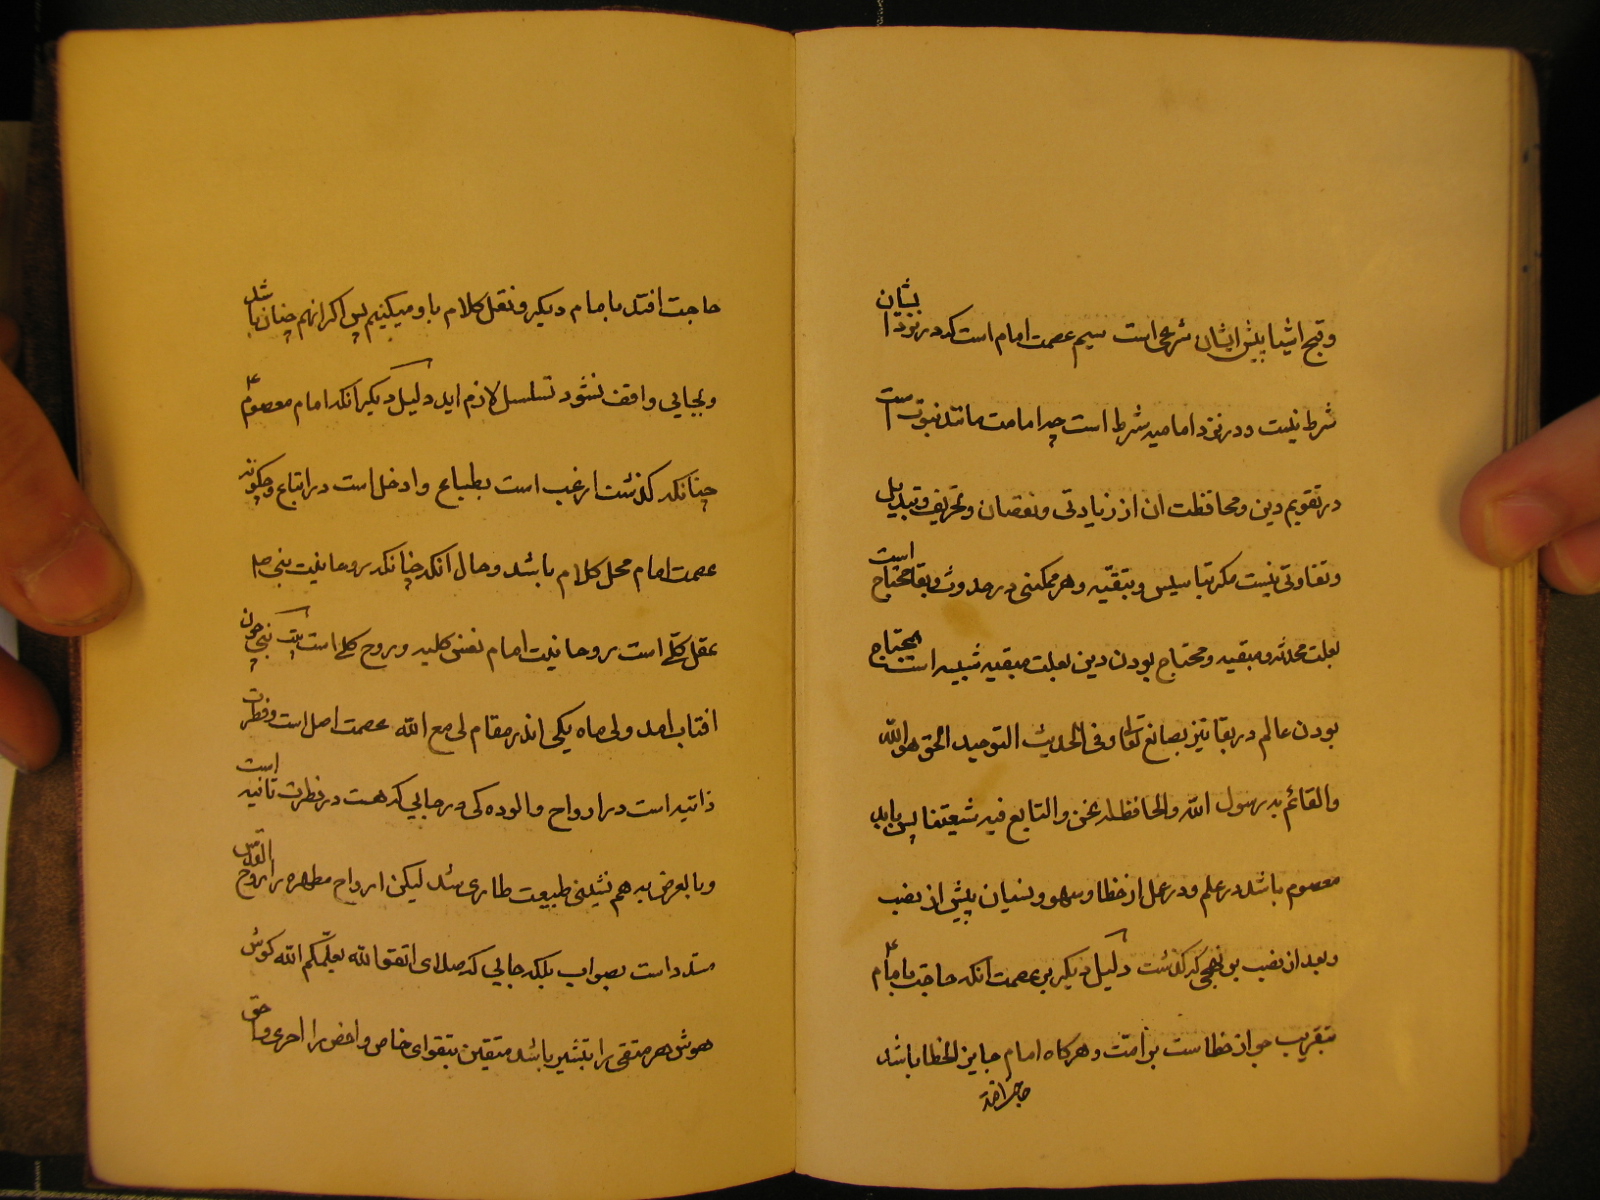 وقبح اشیا پیش ایشان شرعی است سیم عصمت امام است که در نزد ایشان
شرط نیست و در نزد امامیه شرط است چه امامت مانند نبوت است
در تقویم دین و محافظت ان از زیادتی و نقصان و تحریف و تبدیل
و تفاوتی نیست مکر بتاسیس و تبقیه و هر ممکنی در حدوث و بقا محتاج است
بعلت محدثه و مبقیه و محتاج بودن دین بعلت مبقیه شبیه است بمحتاج
بودن عالم در بقا نیز بصانع تعا و فی الحدیث التوحید الحق هو الله
والقائم به رسول الله والحافظ له نحن والتابع فیه شیعتنا پس باید
معصوم باشد در علم و در عمل از خطا و سهو و نسیان پیش از نصب
و بعد از نصب بر نهجی که کذشت دلیل دیکر بر عصمت آنکه حاجت بامام ع
بتقریب جواز خطاست بر امت و هرکاه امام جایز الخطا باشد
حاجت افتد
حاجت افتد بامام دیکر و نقل کلام باو میکنیم پس اکر انهم چنان باشد
و بجایی واقف نشود تسلسل لازم اید دلیل دیکر آنکه امام معصوم ع
چنانکه کذشت ارغب است بطباع و ادخل است در اتباع و چکونه
عصمت امام محل کلام باشد و حال آنکه چنانکه روحانیت نبی ص
عقل کلی است روحانیت امام نفس کلیه و روح کلی است نبی چون
افتاب امد ولی ماه یکی اند در مقام لی مع الله عصمت اصل است و فطرت
ذاتیه است در ارواح و الوده کی در جایی که هست در فطرت ثانیه است
و بالعرض به هم نشینی طبیعت طاری شد لیکن ارواح مطهره را روح القدس
مسدد است بصواب بلکه جایی که صلای اتقوا الله یعلمکم الله کوش
هوش هر متقی را بتبشیر باشد متقین بتقوای خاص و اخص را احری و احق